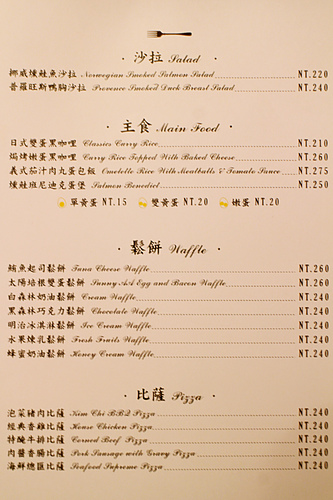 · 沙拉 Salad ·
挪威燻鮭魚沙拉 Norwegian Smoked Salmon Salad NT.220
普羅旺斯鴨胸沙拉 Provence Smoked Duck Breast Salad NT.240
· 主食 Main Food ·
日式雙蛋黑咖哩 Classics Curry Rice NT.210
焗烤嫩蛋黑咖哩 Curry Rice Topped With Baked Cheese NT.260
義式茄汁肉丸蛋包飯 Omelette Rice With Meatballs & Tomato Sauce NT.275
燻鮭班尼迪克蛋堡 Salmon Benedict NT.250
單黃蛋 NT.15 雙黃蛋 NT.20 嫩蛋 NT.20
· 鬆餅 Waffle ·
鮪魚起司鬆餅 Tuna Cheese Waffle NT.260
太陽培根雙蛋鬆餅 Sunny AA Egg and Bacon Waffle NT.260
白森林奶油鬆餅 Cream Waffle NT.240
黑森林巧克力鬆餅 Chocolate Waffle NT.240
明治冰淇淋鬆餅 Ice Cream Waffle NT.240
水果煉乳鬆餅 Fresh Fruits Waffle NT.240
蜂蜜奶油鬆餅 Honey Cream Waffle NT.240
· 比薩 Pizza ·
泡菜豬肉比薩 Kim Chi BBQ Pizza NT.240
經典香雞比薩 House Chicken Pizza NT.240
特醃牛排比薩 Corned Beef Pizza NT.240
肉醬香腸比薩 Pork Sausage with Gravy Pizza NT.240
海鮮總匯比薩 Seafood Supreme Pizza NT.240